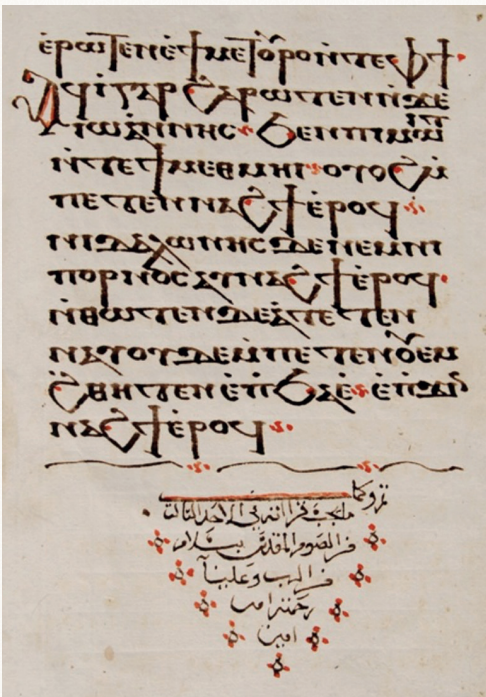 ⲉ̀ⲣⲱⲧⲉⲛ ⲉ̀ϯⲙⲉⲧⲟⲩⲣⲟ ⲛ̀ⲧⲉ ⲫϯ
ⲁϥⲓ̀ ⲅⲁⲣ ϩⲁⲣⲱⲧⲉⲛ ⲛ̀ϫⲉ
ⲓⲱⲁⲛⲛⲏⲥ ϧⲉⲛ ⲡⲓⲙⲱⲓⲧ
ⲛ̀ⲧⲉ ϯⲙⲉⲑⲙⲏⲓ ⲟⲩⲟϩ ⲙ̀
ⲡⲉⲧⲉⲛⲛⲁϩϯ ⲉ̀ⲣⲟϥ
ⲇⲉ ⲛⲉⲙ ⲛⲓ
ⲡⲟⲣⲛⲟⲥ ⲁⲩⲛⲁϩϯ ⲉ̀ⲣⲟϥ
ⲛ̀ⲑⲱⲧⲉⲛ ⲇⲉ ⲁ̀ⲧⲉⲧⲉⲛ
ⲛⲁⲩ ⲟⲩⲇⲉ ⲙ̀ⲡⲉⲧⲉⲛⲟⲩⲉⲙ
ϩ̀ⲑⲏⲧⲉⲛ ⲉ̀ⲡϧⲁⲉ̀ ⲉ̀ⲡϫⲓⲛ
ⲛⲁϩϯ ⲉ̀ⲣⲟϥ
تم وكمل
ما يجب قراته في الاحد الثالث
من الصوم المقدس بسلام
من الرب وعلينا
رحمته امين
امين